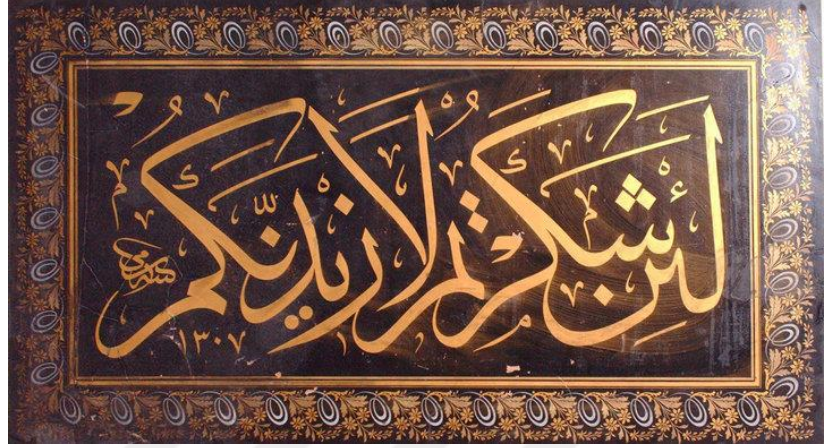 لئن شكرتم لازيدنكم
١٣٠٧